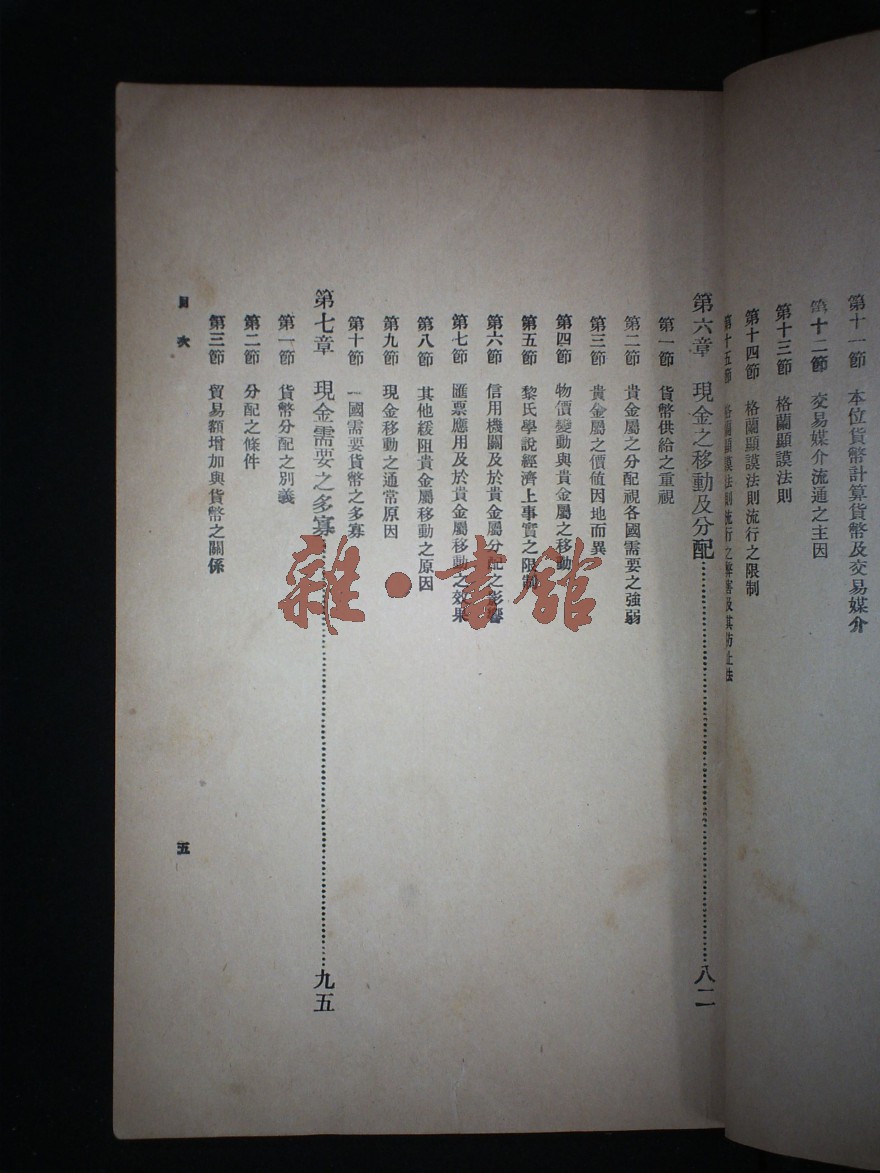 第十一節 本位貨幣計算貨幣及交易媒介
第十二節 交易媒介流通之主因
第十三節 格蘭顯謨法則
第十四節 格蘭顯謨法則流行之限制
第十五節 格蘭顯謨法則流行之弊害及其防止法
第六章 現金之移動及分配 八二
第一節 貨幣供給之重視
第二節 貴金屬之分配視各國需要之強弱
第三節 貴金屬之價值因地而異
第四節 物價變動與貴金屬之移動
第五節 黎氏學說經濟上事實之限制
第六節 信用機關及於貴金屬分配之影響
第七節 匯票應用及於貴金屬移動之效果
第八節 其他緩阻貴金屬移動之原因
第九節 現金移動之通常原因
第十節 一國需要貨幣之多寡
第七章 現金需要之多寡 九五
第一節 貨幣分配之別義
第二節 分配之條件
第三節 貿易額增加與貨幣之關係
目次 五
雜·書館